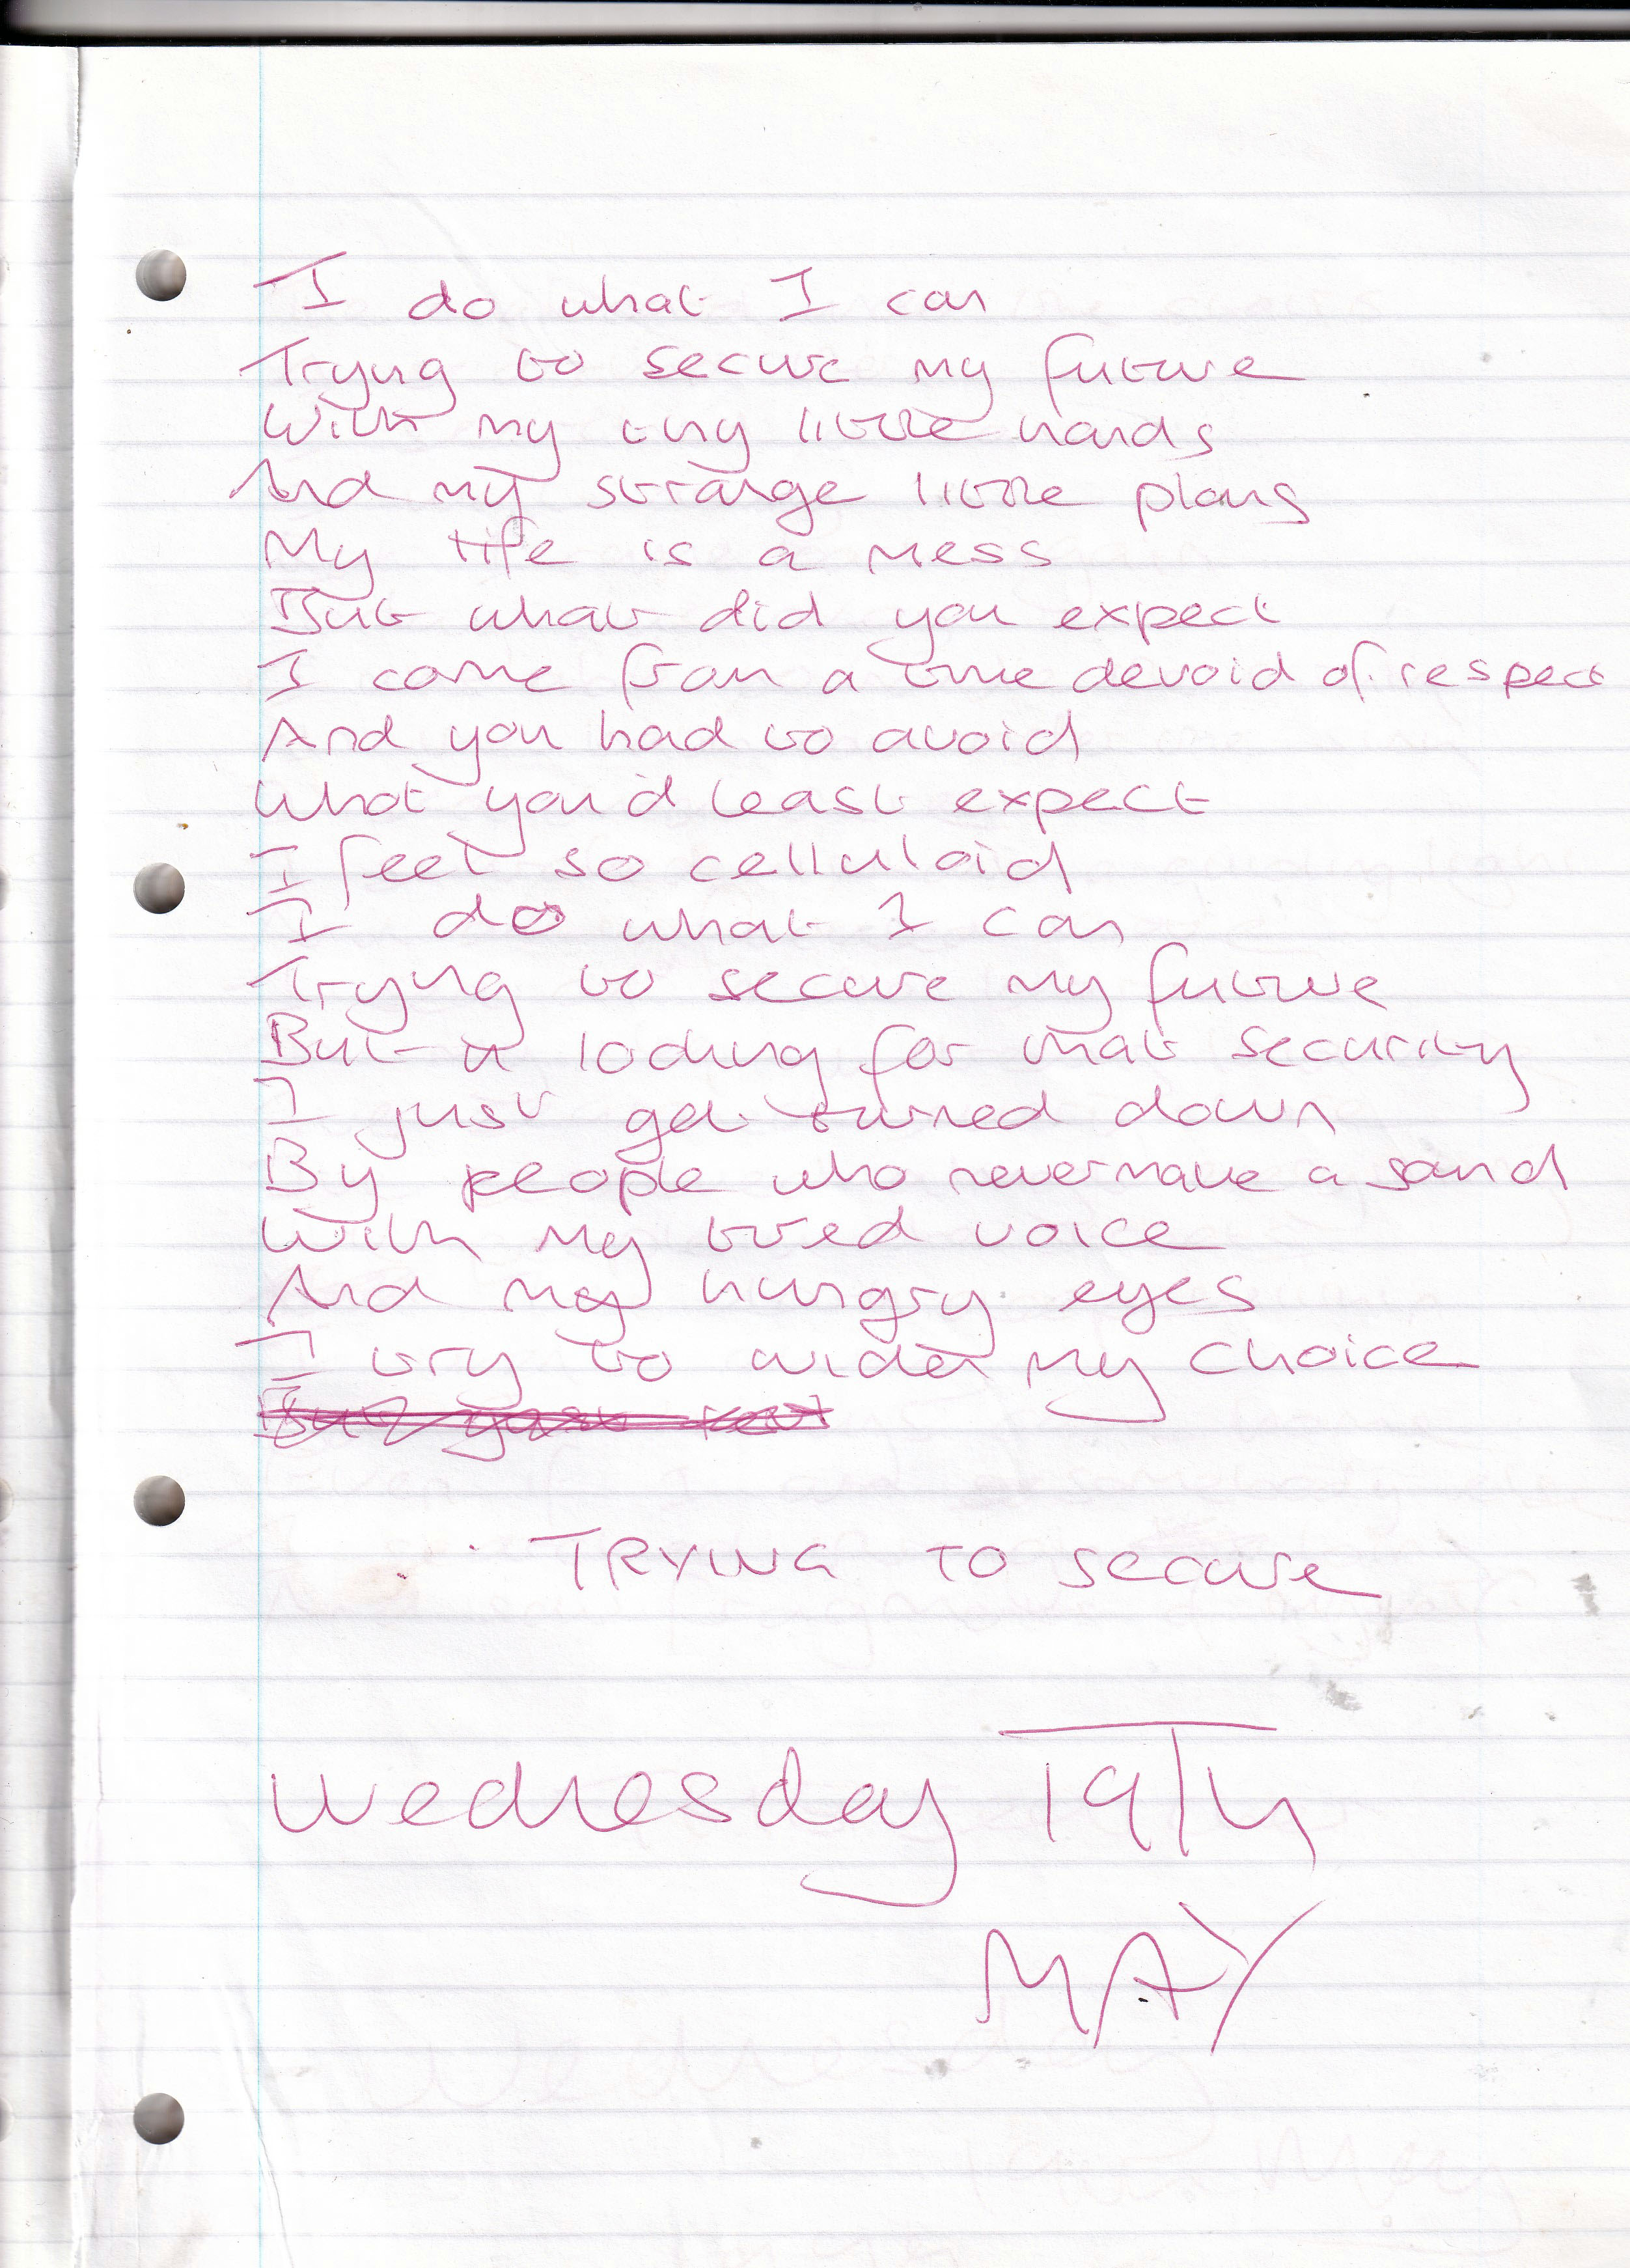 I do what I can
Trying to secure my future
With my tiny little hands
And my strange little plans
My life is a mess
But what did you expect
I come from a time devoid of respect
And you had to avoid
What you'd least expect
I feel so celluloid
I do what I can
Trying to secure my future
But in looking for that security
I just get turned down
By people who never make a sound
With my tired voice
And my hungry eyes
I try to widen my choice
TRYING TO SECURE
Wednesday 19th
MAY